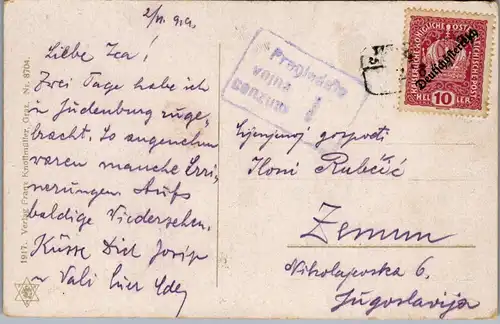 2/VI. 919.
Liebe Ica!
Zwei Tage habe ich
in Judenburg zuge-
bracht. So angenehm
waren manche Erri-
nerungen. Aufs
baldige Wiedersehen.
Küsse Dich Josip
u Vali
1917. Verlag Franz Knollmüller, Graz. Nr. 8704.
Pregledala
vojna
cenzura
KAISERLICHE KÖNIGLICHE
ÖSTERREICHISCHE POST
Deutschösterreich
HELLER
10
Cijenjenoj gospodji
Iloni Rubčić
Zemun
Nikolajevska 6.
Jugoslavija